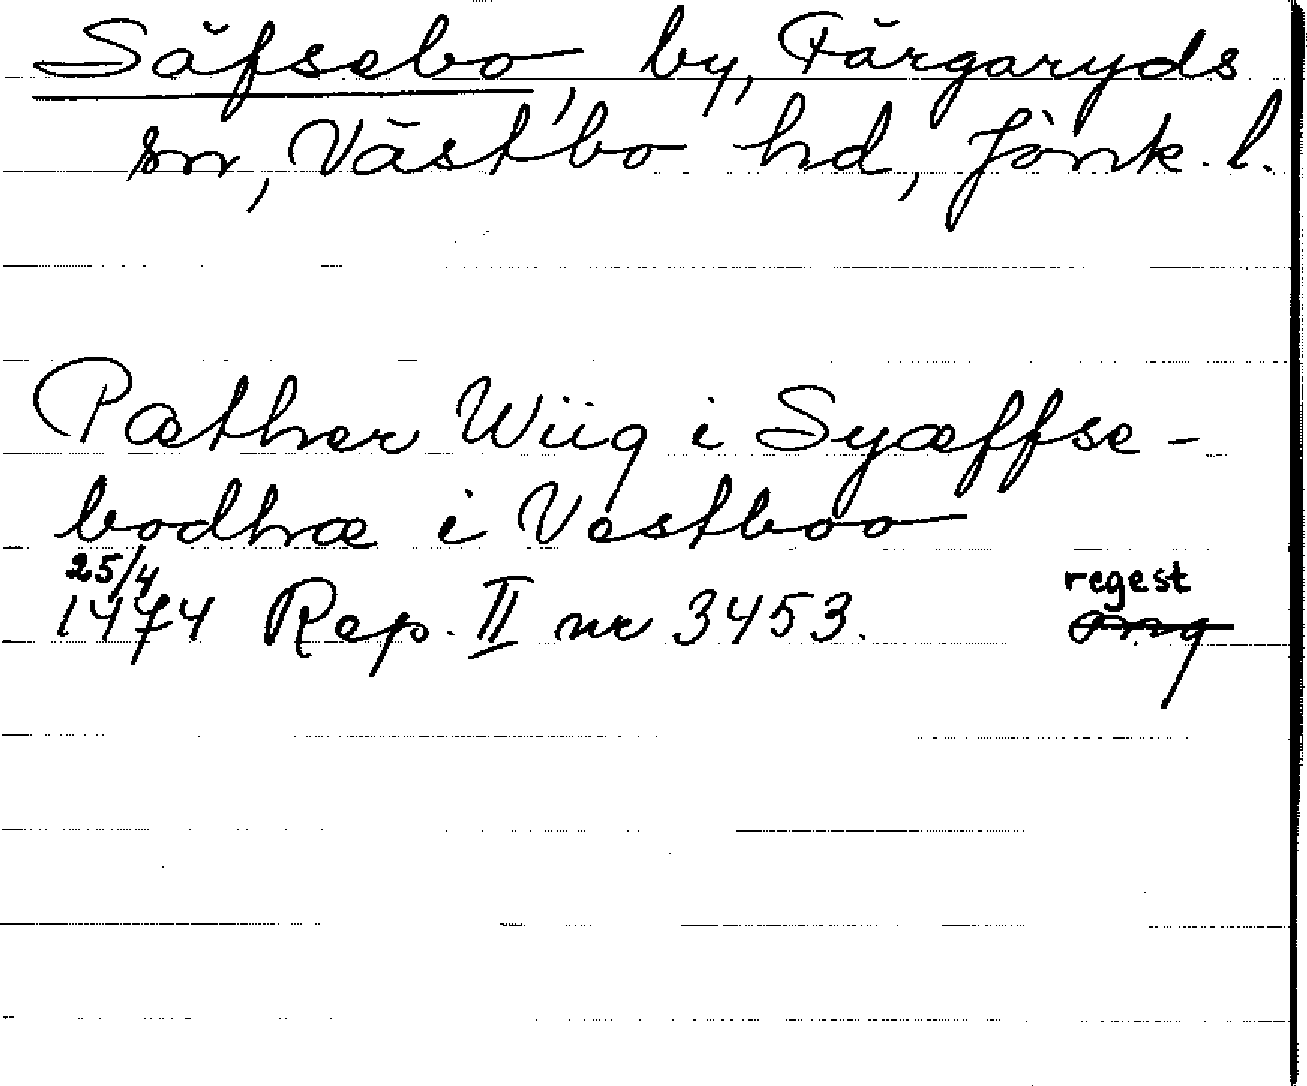 Säfsebo, by, Färgaryds
sn, Västbo hd, Jönk. l.
Pæther Wiig i Syæffse-
bodhæ i Vestboo
25/4
1474 Rep. II nr 3453.
regest
orig